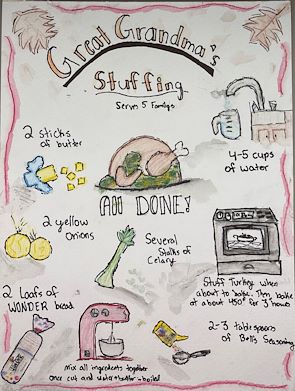 Great Grandma's
Stuffing
Serves 5 Familys
2 sticks
of butter
4-5 cups
of water
All DONE!
2 yellow
Onions
Several
Stalks of
Celary
Stuff Turkey when
about to bake. Then bake
at about 450° for 3 hours
2 Loafs of
WONDER bread
2-3 tablespoons
of Bell's Seasoning
Mix all ingredients together
once cut and